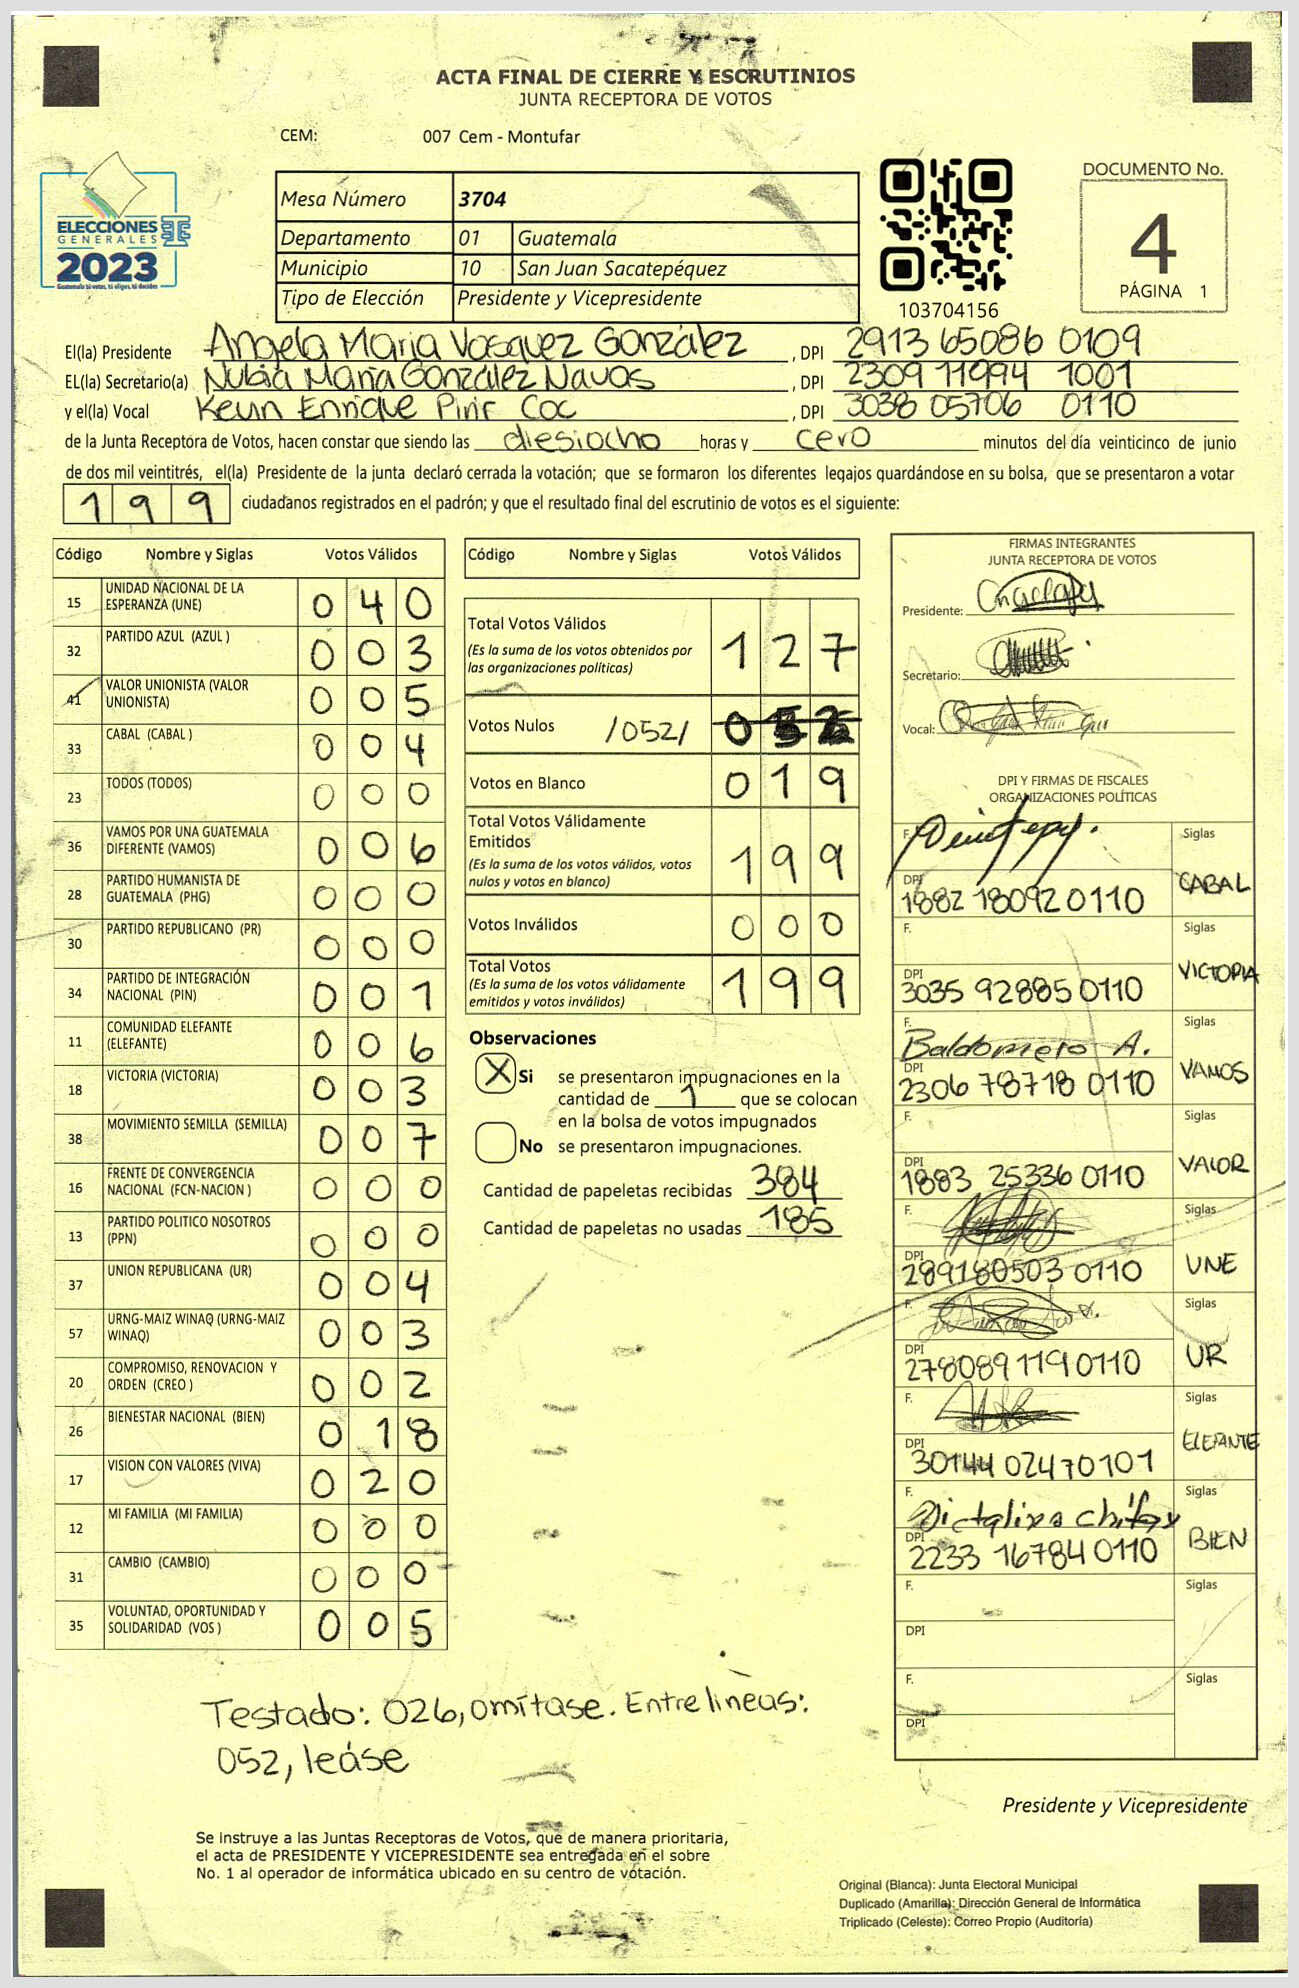 ACTA FINAL DE CIERRE Y ESCRUTINIOS
JUNTA RECEPTORA DE VOTOS
CEM: 007 Cem - Montufar
ELECCIONES
GENERALES
2023
Guatemala tú votas, tú eliges, tú decides
Mesa Número 3704
Departamento 01 Guatemala
Municipio 10 San Juan Sacatepéquez
Tipo de Elección Presidente y Vicepresidente
103704156
DOCUMENTO No.
4
PÁGINA 1
El(la) Presidente Angela Maria Vasquez González , DPI 2913 65086 0109
EL(la) Secretario(a) Nubia Maria González Navas , DPI 2309 11994 1001
y el(la) Vocal Kevin Enrique Pirir Coc , DPI 3038 05706 0110
de la Junta Receptora de Votos, hacen constar que siendo las diesiocho horas y cero minutos del día veinticinco de junio
de dos mil veintitrés, el(la) Presidente de la junta declaró cerrada la votación; que se formaron los diferentes legajos guardándose en su bolsa, que se presentaron a votar
199 ciudadanos registrados en el padrón; y que el resultado final del escrutinio de votos es el siguiente:
Código Nombre y Siglas Votos Válidos
15 UNIDAD NACIONAL DE LA ESPERANZA (UNE) 040
32 PARTIDO AZUL (AZUL ) 003
41 VALOR UNIONISTA (VALOR UNIONISTA) 005
33 CABAL (CABAL ) 004
23 TODOS (TODOS) 000
36 VAMOS POR UNA GUATEMALA DIFERENTE (VAMOS) 006
28 PARTIDO HUMANISTA DE GUATEMALA (PHG) 000
30 PARTIDO REPUBLICANO (PR) 000
34 PARTIDO DE INTEGRACIÓN NACIONAL (PIN) 001
11 COMUNIDAD ELEFANTE (ELEFANTE) 006
18 VICTORIA (VICTORIA) 003
38 MOVIMIENTO SEMILLA (SEMILLA) 007
16 FRENTE DE CONVERGENCIA NACIONAL (FCN-NACION ) 000
13 PARTIDO POLITICO NOSOTROS (PPN) 000
37 UNION REPUBLICANA (UR) 004
57 URNG-MAIZ WINAQ (URNG-MAIZ WINAQ) 003
20 COMPROMISO, RENOVACION Y ORDEN (CREO ) 002
26 BIENESTAR NACIONAL (BIEN) 018
17 VISION CON VALORES (VIVA) 020
12 MI FAMILIA (MI FAMILIA) 000
31 CAMBIO (CAMBIO) 000
35 VOLUNTAD, OPORTUNIDAD Y SOLIDARIDAD (VOS ) 005
Código Nombre y Siglas Votos Válidos
Total Votos Válidos 127
(Es la suma de los votos obtenidos por
las organizaciones políticas)
Votos Nulos /052/
Votos en Blanco 019
Total Votos Válidamente
Emitidos 199
(Es la suma de los votos válidos, votos
nulos y votos en blanco)
Votos Inválidos 000
Total Votos 199
(Es la suma de los votos válidamente
emitidos y votos inválidos)
Observaciones
X Si se presentaron impugnaciones en la
cantidad de 1 que se colocan
en la bolsa de votos impugnados
No se presentaron impugnaciones.
Cantidad de papeletas recibidas 384
Cantidad de papeletas no usadas 185
FIRMAS INTEGRANTES
JUNTA RECEPTORA DE VOTOS
Presidente:
Secretario:
Vocal:
DPI Y FIRMAS DE FISCALES
ORGANIZACIONES POLÍTICAS
F. Siglas
DPI 1882 18092 0110 CABAL
F. Siglas
DPI 3035 92885 0110 VICTORIA
F. Baldomero A. Siglas
DPI 2306 78718 0110 VAMOS
F. Siglas
DPI 1883 25336 0110 VALOR
F. Siglas
DPI 289180503 0110 UNE
F. Siglas
DPI 2780891190110 UR
F. Siglas
DPI 30144 02470101 ELEFANTE
F. Siglas
DPI 2233 16784 0110 BIEN
F. Siglas
DPI
F. Siglas
DPI
Testado: 026, omítase. Entrelineas:
052, leáse
Presidente y Vicepresidente
Se instruye a las Juntas Receptoras de Votos, que de manera prioritaria,
el acta de PRESIDENTE Y VICEPRESIDENTE sea entregada en el sobre
No. 1 al operador de informática ubicado en su centro de votación.
Original (Blanca): Junta Electoral Municipal
Duplicado (Amarilla): Dirección General de Informática
Triplicado (Celeste): Correo Propio (Auditoría)